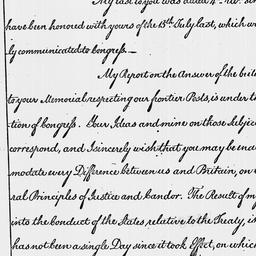 My last to you was dated 4th Nov. sin
have been honored with yours of the 15th July last, which wa
ly communicated to Congress.—
My Report on the Answer of the brite
to your Memorial respecting our frontier Posts, is under th
tion of Congress. Your Ideas and mine on those Subjec
correspond, and I sincerely wish that you may be ena
modate every Difference between us and Britain, on
ral Principles of Justice and Candor. The Result of m
into the conduct of the States relative to the Treaty, is
has not been a single Day since it took Effect, on which